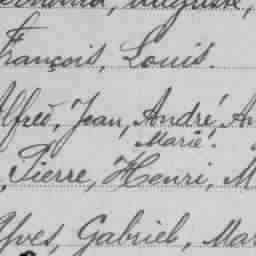 François, Louis.
Alfred, Jean, André,
Marie.
Pierre, Henri,
Yves, Gabriel, Mar